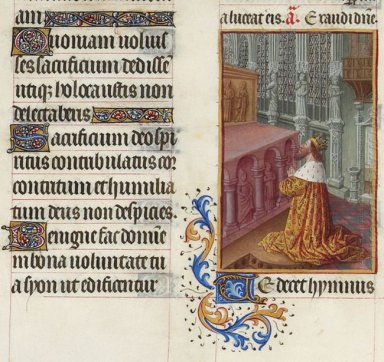 am
Quoniam voluis
ses sacrificium dedisse
utiq; holocaustis non
delectaberis
Sacrificium deo spi
ritus contribulatus cor
contritum et humilia
tum deus non despicies.
Benigne fac domine
in bona voluntate tu
a syon ut edificentur
a. Exaudi dne.
Te decet hymnus